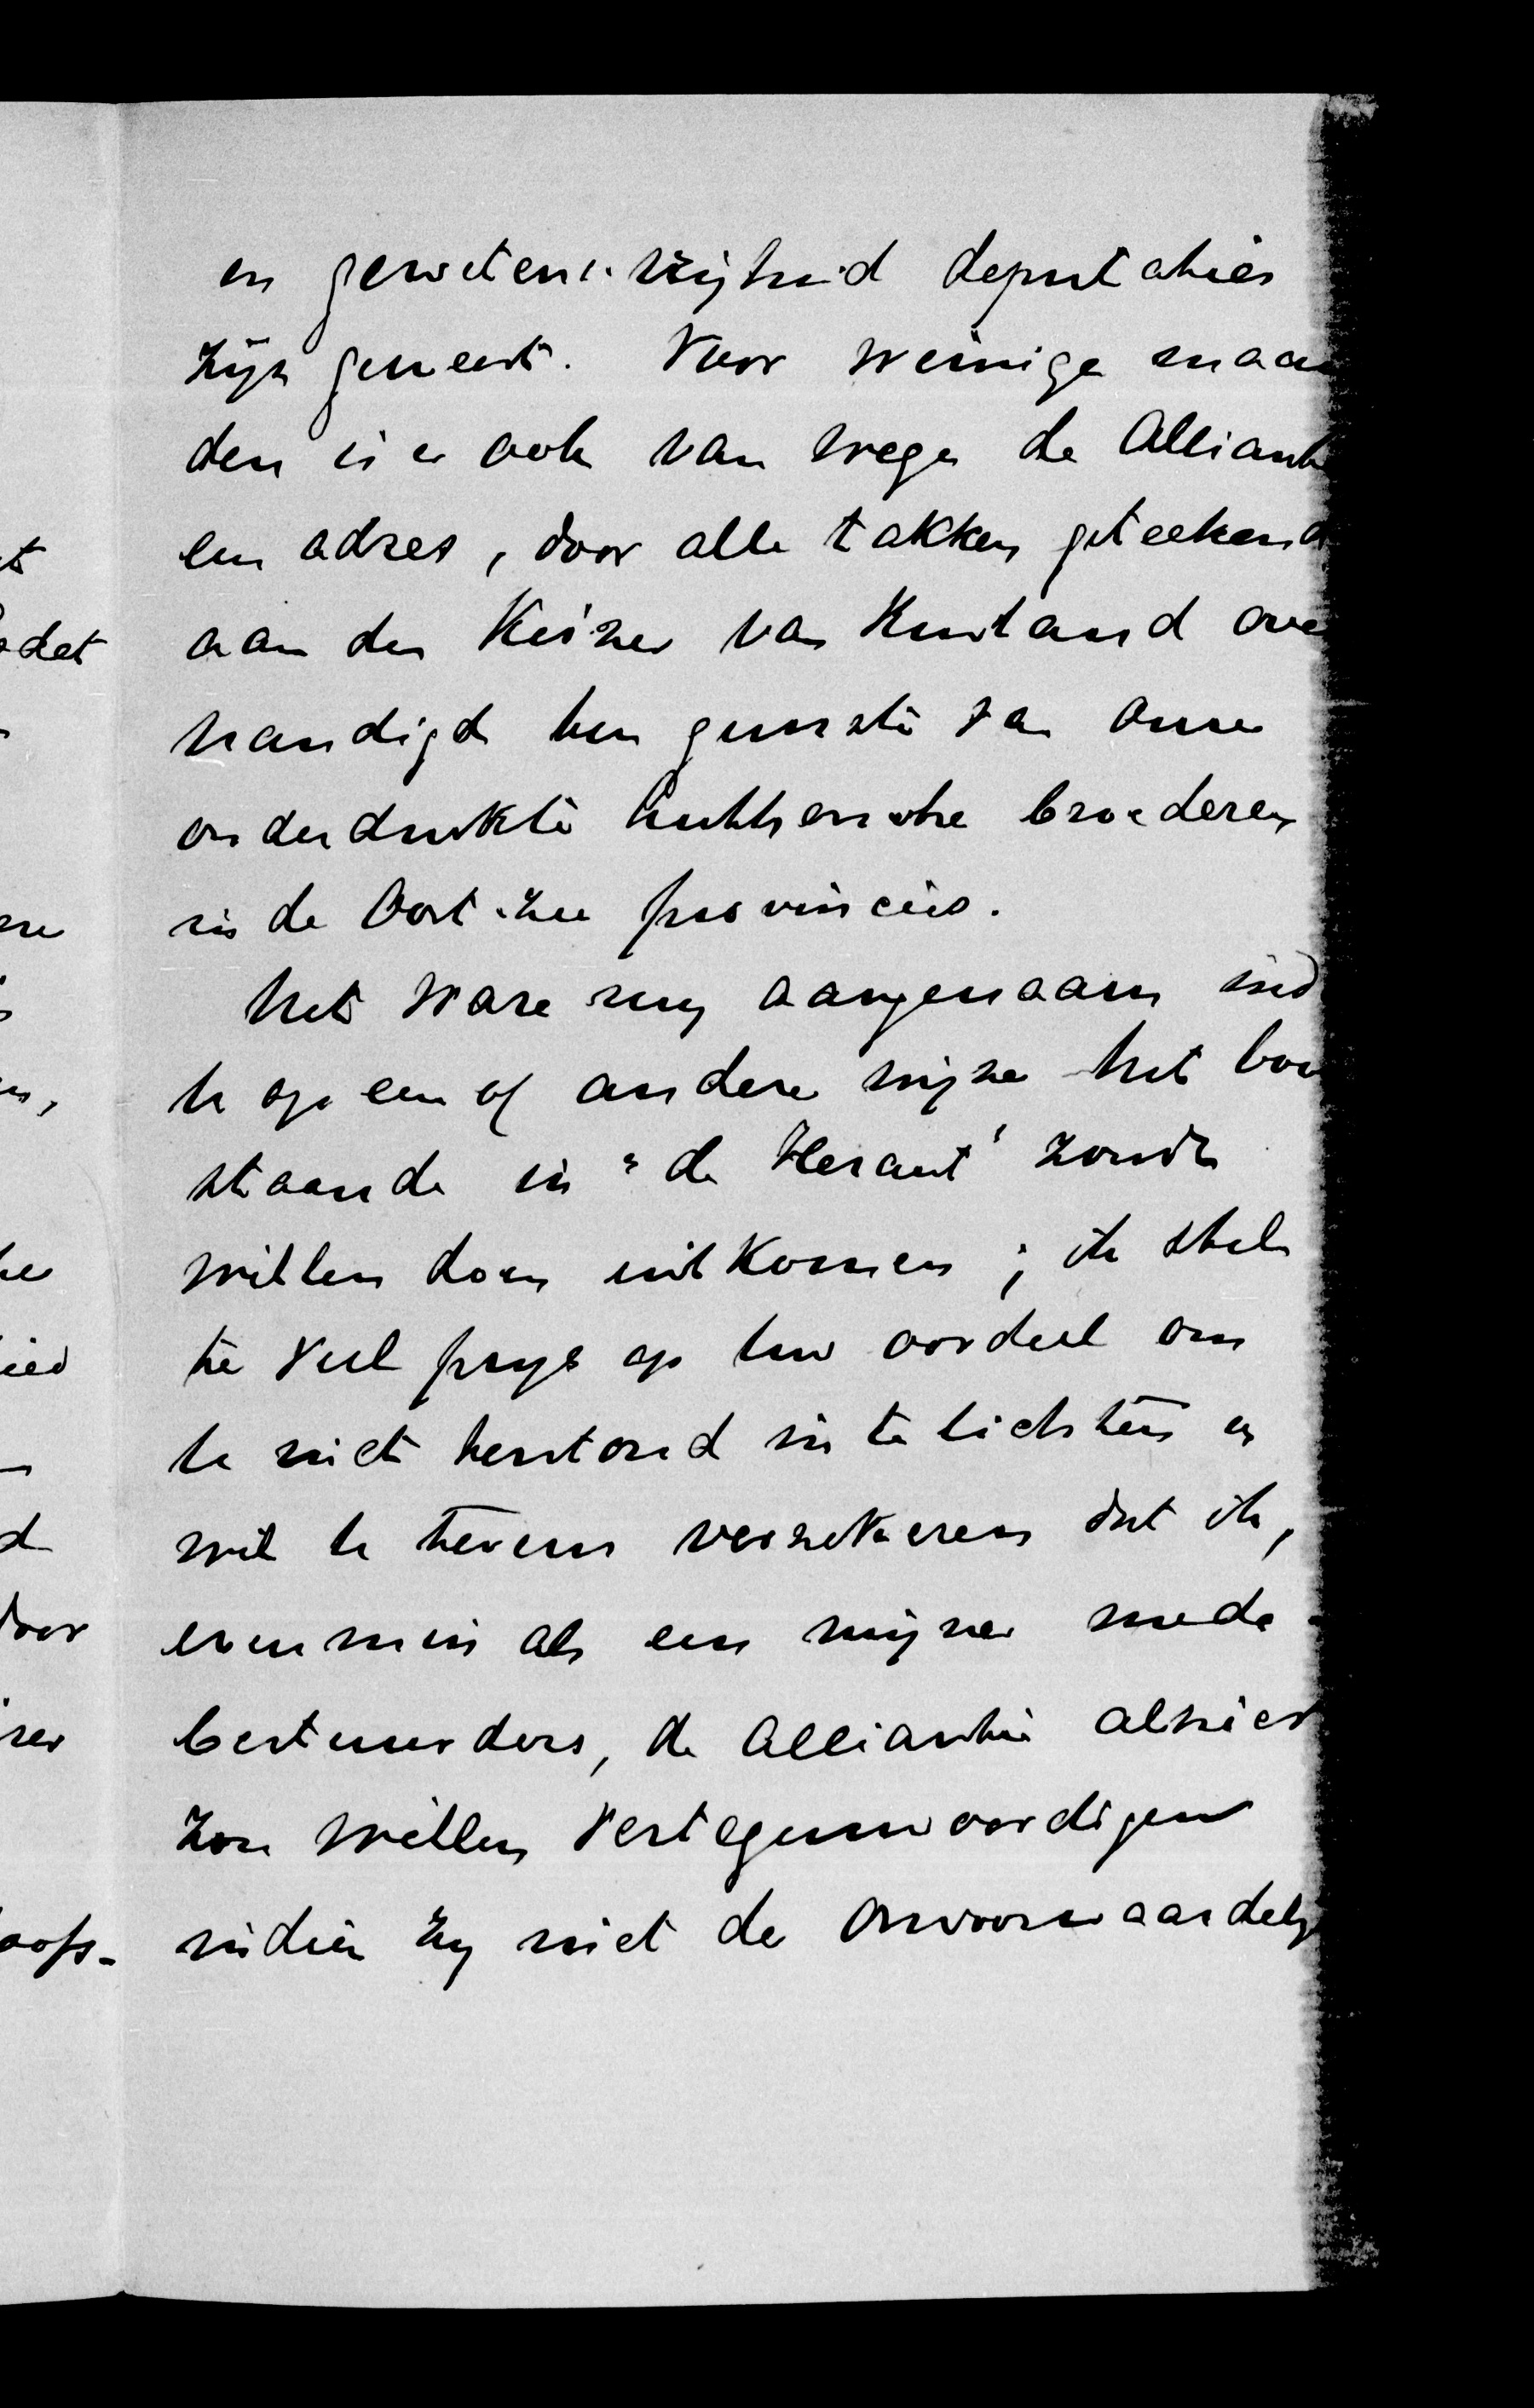 en gewetens-vrijheid deputatiën
zijn geweest. Voor weinige maan
den is er ook van wege de Alliantie
een adres, door alle takken geteekend
aan den Keizer van Rusland over
handigd ten gunste van onze
onderdrukte Luthersche broederen
in de Oost-zee provinciën.
Het ware my aangenaam ind
U op een of andere wijze het bov
staande in "de Heraut" zoudt
willen doen uitkomen; ik stel
te veel prijs op Uw oordeel om
U niet beter in te lichten en
wil U tevens verzekeren dat ik,
evenmin als een mijner mede-
bestuurders, de Alliantie alhier
zou willen vertegenwoordigen
indien zy niet de onvoorwaardely
t
det
ne
en,
ied
d
door
zer
oofs-